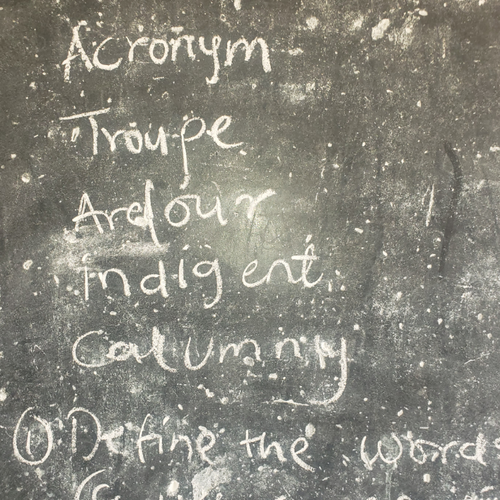 Acronym
Troupe
Ardour
indigent
Calumny
① Define the word